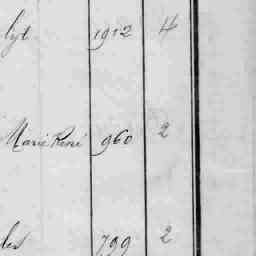 lyt 1912 4
Marie René 960 2
les 799 2